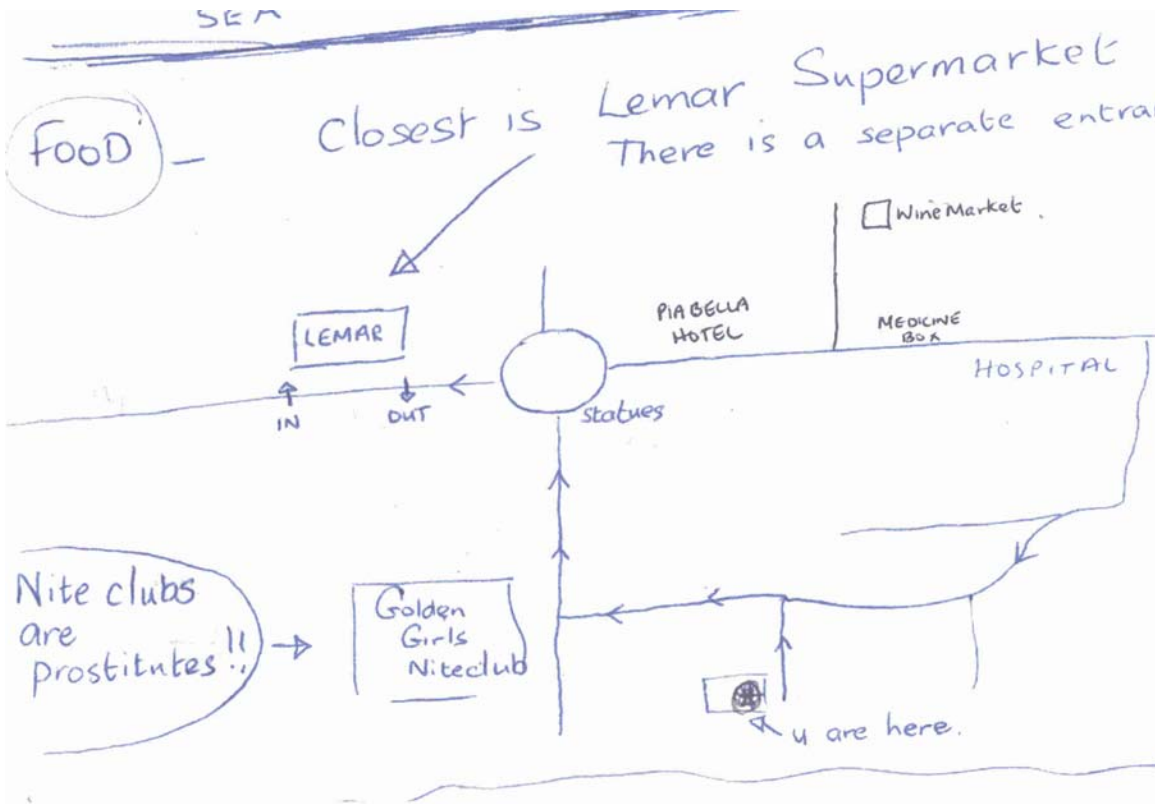 SEA
FOOD - Closest is Lemar Supermarket
There is a separate
Wine Market.
PIABELLA
HOTEL
MEDICINE
BOX
LEMAR
HOSPITAL
IN
OUT
statues
Nite clubs
are
prostitutes!!
Golden
Girls
Niteclub
u are here.